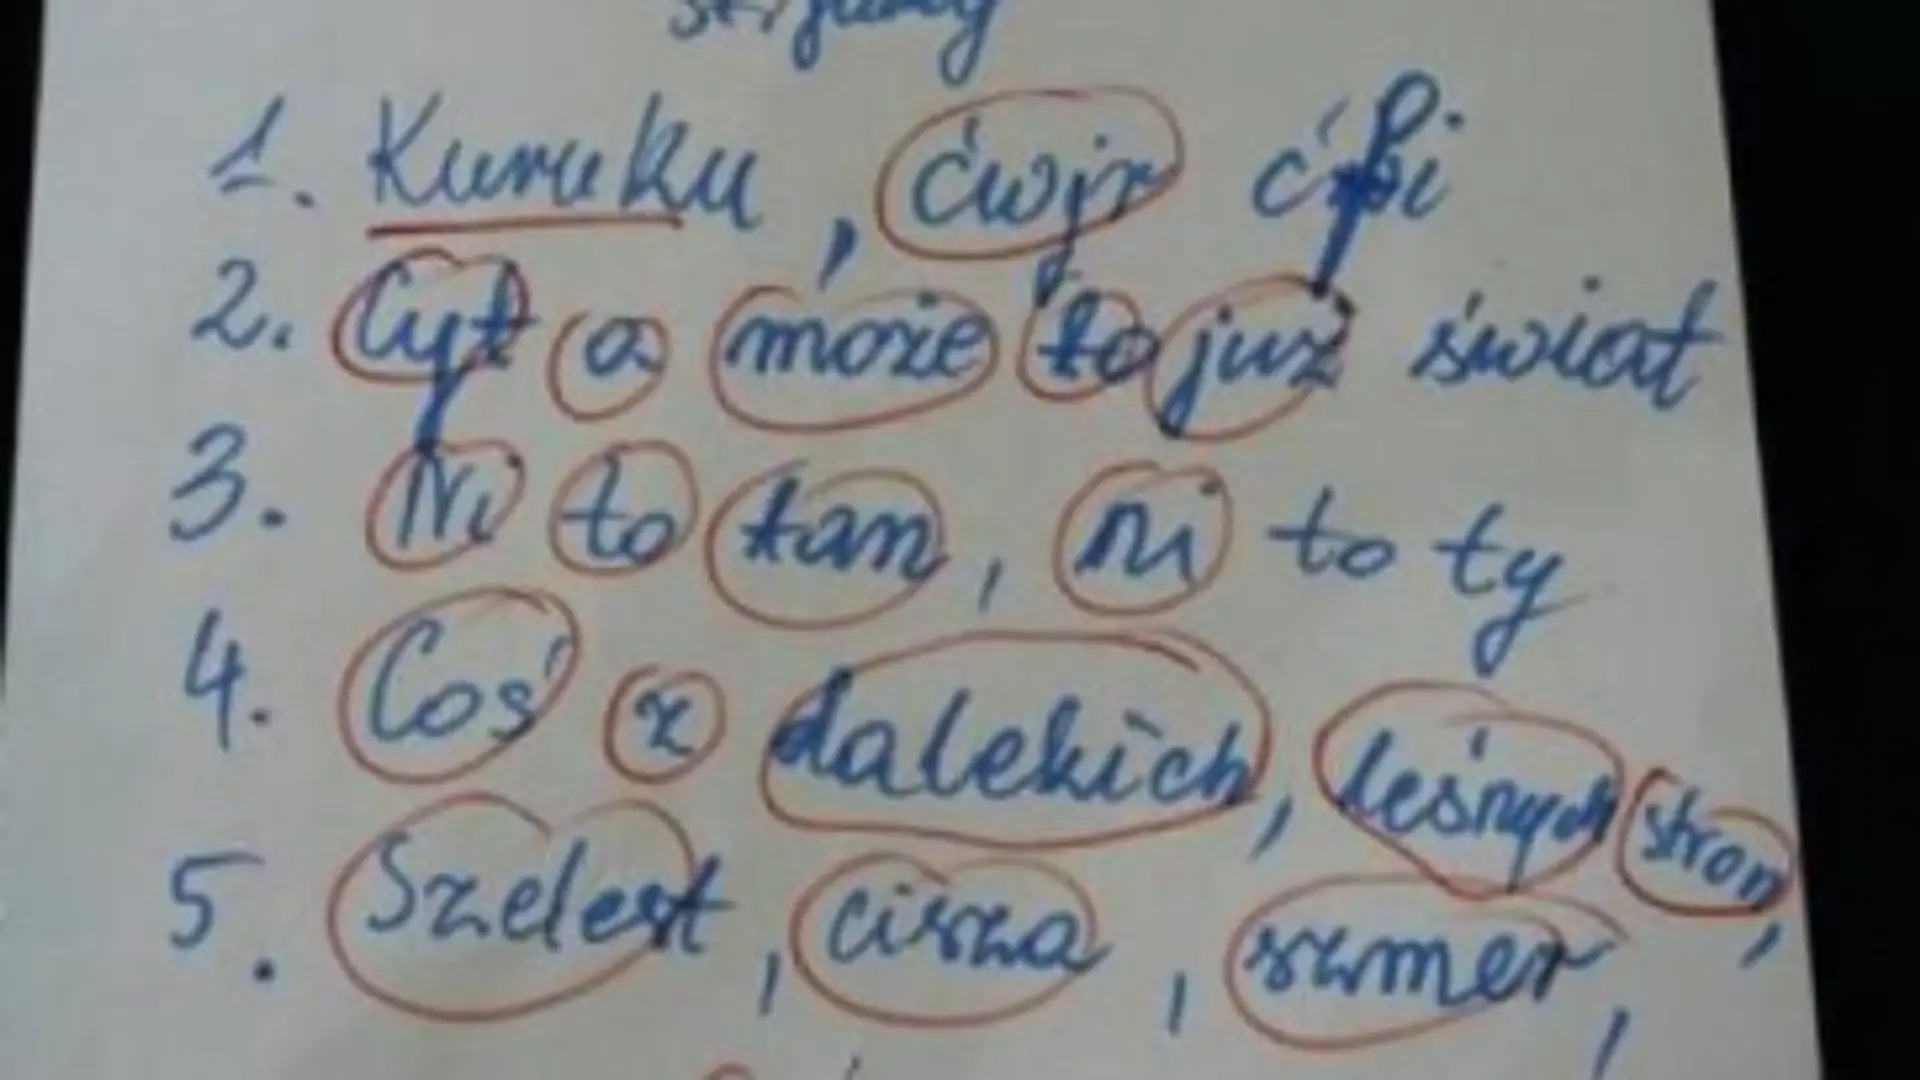 1. Kuruku, ćwir
2. Cyt a może to już świat
3. Ni to tan, ni to ty
4. Coś z dalekich, leśnych stron,
5. Szelest, cisza, szmer,